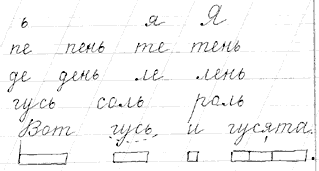 ь я Я
пе пень те тень
де день ле лень
гусь соль роль
Вот гусь и гусята.